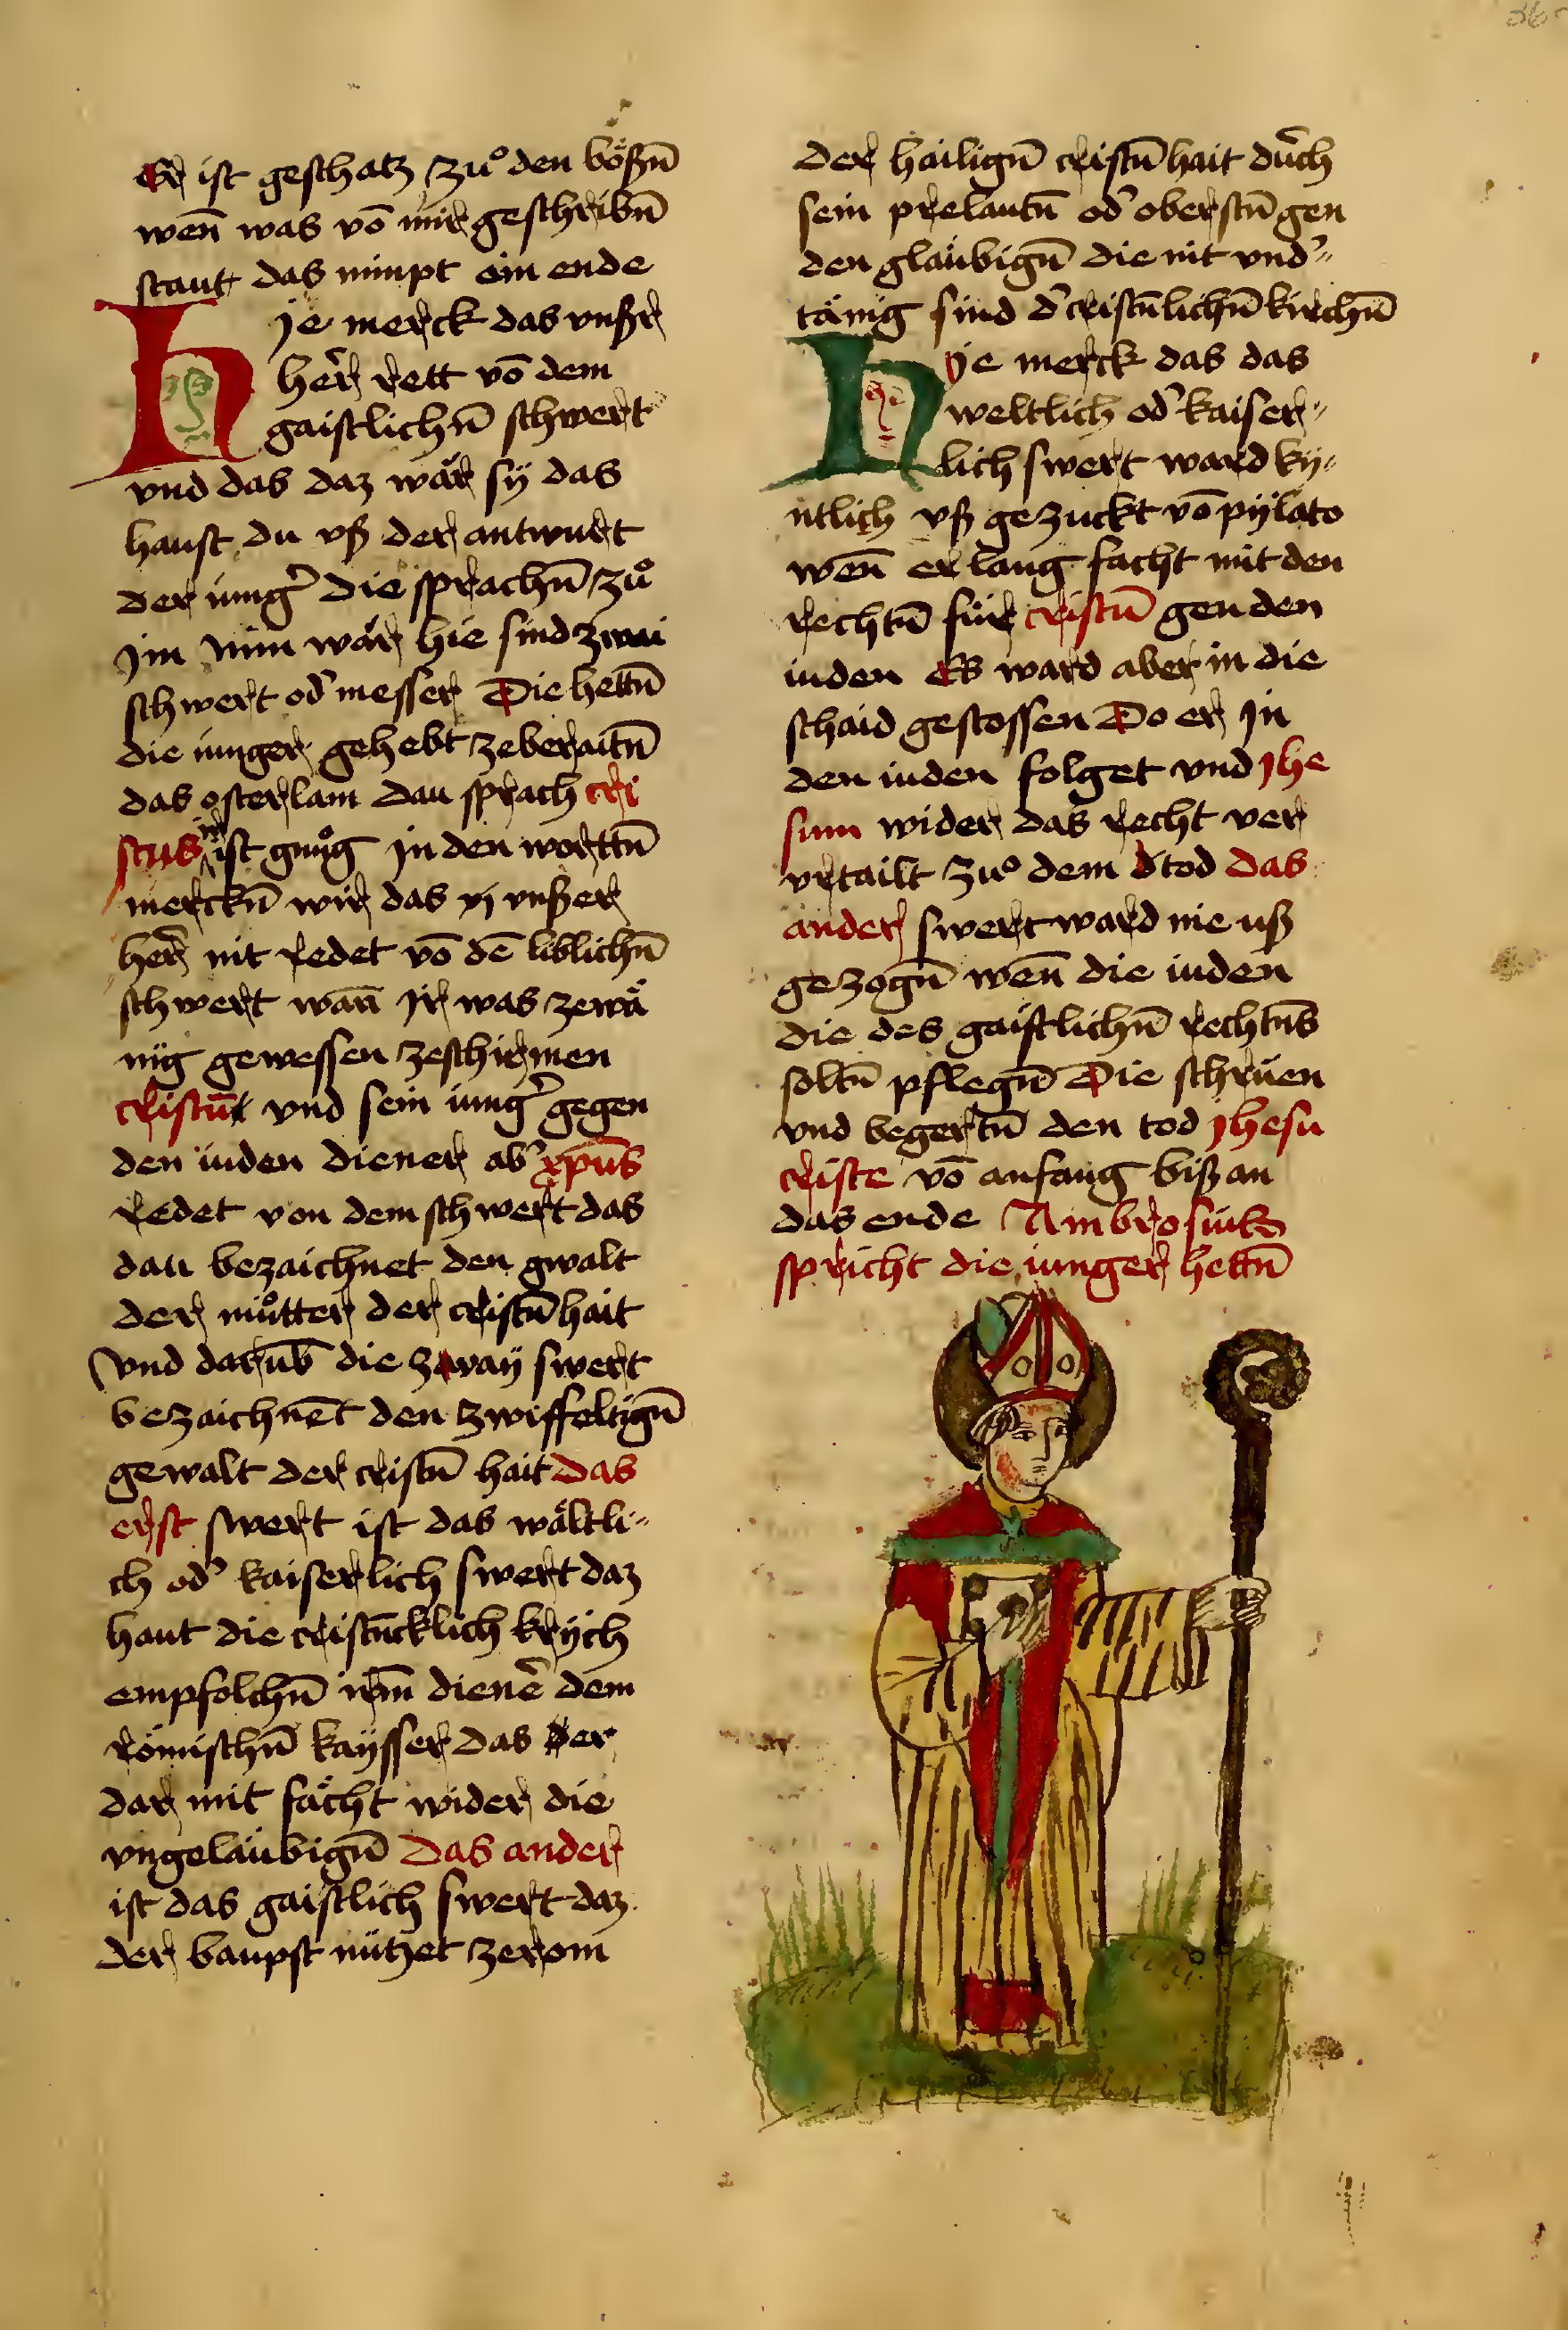 Er ist geschatz zuͦ den boͤßn̄
wen̄ was vō mir geschribn̄
staut das nimpt ein ende
Hje merck das vnßer
her̄ rett vō dem
gaistlichn̄ schwert
vnd das daz wär sÿ das
haust du vß der antwurt
der iung̾ die sprachn̄ zuͦ
Jm nim wär hie sind zwai
schwert od̾ messer Die hettn̄
die iunger gehebt zeberaitn̄
das osterlam dau sprach cri
stus ist gnuͦg Jn den worttn̄
merckn̄ wir das vnßer
her̄ nit redet vō dē liblichn̄
schwert wan̄ Jr was zewä
nig gewessen zeschirmen
cristū vnd sein iung̾ gegen
den iuden diener ab̾ xp̄us
redet von dem schwert das
dau bezaichnet den gwalt
der muͦtter der cristn̄hait
Vnd darūb die zway swert
bezaichnēt den zwiffeltign̄
gewalt der cristn̄ hait das
erst swert ist das wältli⸗
ch od̾ kaiserlich swert daz
haut die cristn̄cklich krÿch
empfolchn̄ irm̄ dienē dem
römischn̄ kaÿsser das er
dar mit fächt wider die
vngeläubign̄ Das ander
ist das gaistlich swert daz
der baupst nützet ze rom
der hailign̄ cristn̄hait durch
sein prelautn̄ od̾ oberstn̄ gen
den gläubign̄ die nit vnd̾⸗
tänig sind d̾ cristn̄lichn̄ kirchn̄
Hje merck das das
weltlich od̾ kaiser⸗
lich swert ward kÿ⸗
ntlich vß gezuckt vō pÿlato
wen̄ er lang facht mit den
rechtn̄ für cristū gen den
iuden Es ward aber in die
schaid gestossen Do er Jn
den iuden folget vnd Jhe
sum wider das recht ver
vrtailt zuͦ dem tod das
ander swert ward nie uß
gezogn̄ wen̄ die iuden
die des gaistlichn̄ rechtn̄s
soltn̄ pflegn̄ Die schrüen
vnd begertn̄ den tod Jhesu
criste vō anfang biß an
das ende Ambrosius
spricht die iunger hettn̄